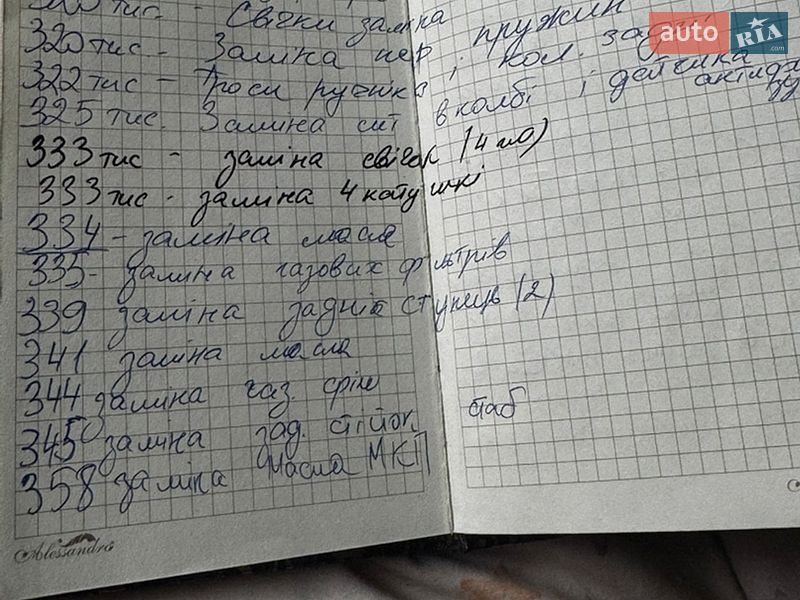 тис. - Свічки заміна
320 тис - Заміна пер пружин
322 тис - Троси ручніка і кол. задні
325 тис. Заміна сит в колбі і датчика
333 тис - заміна свічок (4 шт)
333 тис - заміна 4 котушкі
334 - заміна масла
335 - заміна газових фільтрів
339 заміна задніх ступець (2)
341 заміна масла
344 заміна газ. філ
345 заміна зад. стійок стаб
358 заміна Масла МКП
Alessandro
auto RIA.com